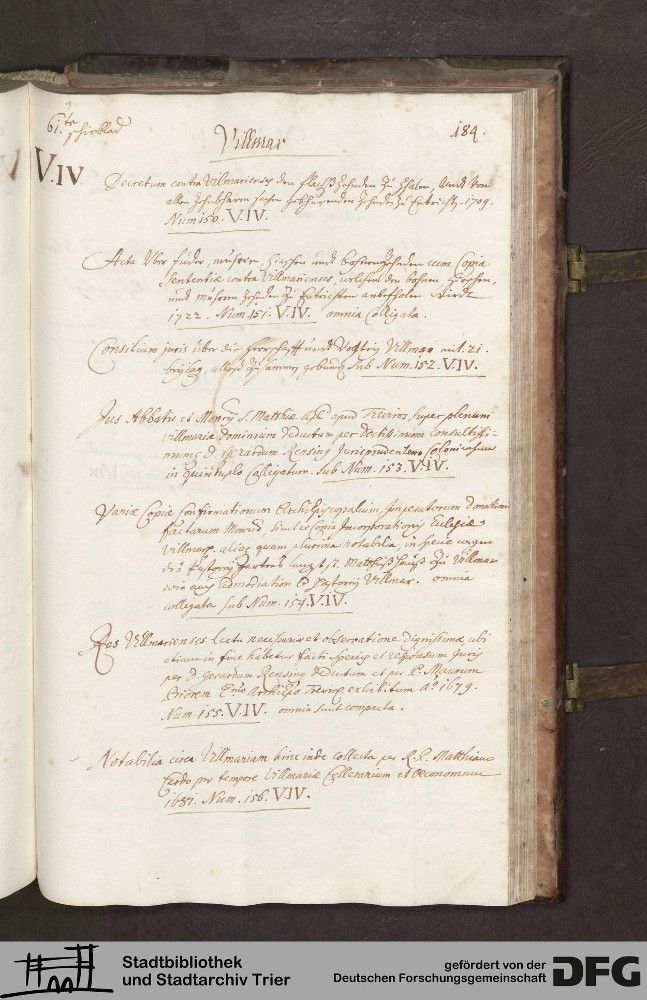 61.te
schieblad
Villmar
184.
V.IV
Decretum contra Vilmarienses den flachszehnden zu zahlen, undt von
allen
zehnden zu Entrichten. 1709.
Num 150. V.IV.
Acta Uber und cum Copia
Sententiæ contra Villmarienses, welchen den
und zehnden zu Entrichten anbefohlen wirdt
1722. Num. 151. V.IV. omnia Colligata.
Consilium juris über die herrschafft undt Vogtey Villmar mit 21
beylag, alles zusammen gebunden sub Num. 152. V.IV.
Jus Abbatis et Monrij S. Matthiæ apud Treviros super plenum
Villmariæ dominium deductum per doctissimum consultissi-
mumq D. Gerardum Rensing Jurisprudentem
in quintuplo Colligatum. Sub Num. 153. V.IV.
Variæ Copiæ Confirmationum Archiepiscopalium, Imperatorum donation
factarum sicut et Copia Incorporationis Ecclesiæ
Villmar. aliaq quam plurima notabilia, in specie wegen
deß Pastorey St. Matthiß hauß zu Villmar
wie auch admodiation Pastorey Villmar. omnia
collegata sub Num. 154. V.IV.
Res Villmarienses lectu necessariæ et observatione dignissimæ ubi
etiam in fine habetur facti species et responsum Juris
per D. Gerardum Rensing deductum et per P. Maurum
Priorem Emo Archiepo Trevir. exhibitum ao 1679.
Num. 155. V.IV. omnia sunt compacta.
Notabilia circa Villmariam hinc inde collecta per R.P. Matthiam
pro tempore Villmariæ Cellerarium et Oeconomum
1687. Num. 156. V.IV.
Stadtbibliothek
und Stadtarchiv Trier
gefördert von der
Deutschen Forschungsgemeinschaft
DFG